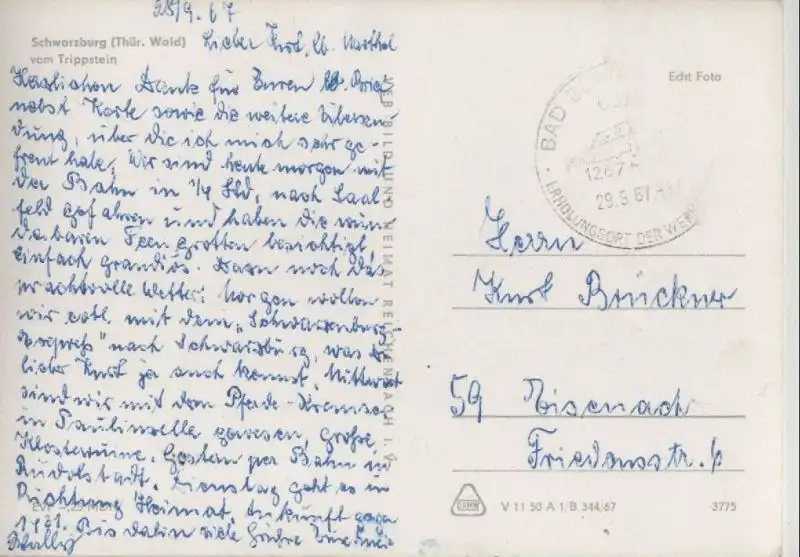 28/9.67
Schwarzburg (Thür. Wald)
vom Trippstein
Lieber Kurt, lb. Marthel
Herzlichen Dank für Euren lb. Brief
nebst Karte sowie die weitere Übersen-
dung, über die ich mich sehr ge-
freut habe. Wir sind heute morgen mit
der Bahn in 1/4 Std. nach Saal-
feld gefahren und haben die wun-
derbaren Feengrotten besichtigt,
einfach grandiös. Dazu noch das
prachtvolle Wetter. Morgen wollen
wir evtl. mit dem "Schwarzenburg-
express" nach Schwarzburg, was Du
lieber Kurt ja auch kennst. Mittwoch
sind wir mit dem Pferde-Kremser
in Paulinzelle gewesen, große
Klosterruine. Gestern per Bahn in
Rudolstadt. Dienstag geht es in
Richtung Heimat. Ankunft gegen
1921. Bis dahin viele Grüße Eure
VEB BILD UND HEIMAT REICHENBACH I. V.
Echt Foto
BAD
1267
29.9.67
ERHOLUNGSORT DER WERK
Herrn
Kurt Brückner
59 Eisenach
Friedensstr. 6
V 11 50 A 1/B 344/67
3775